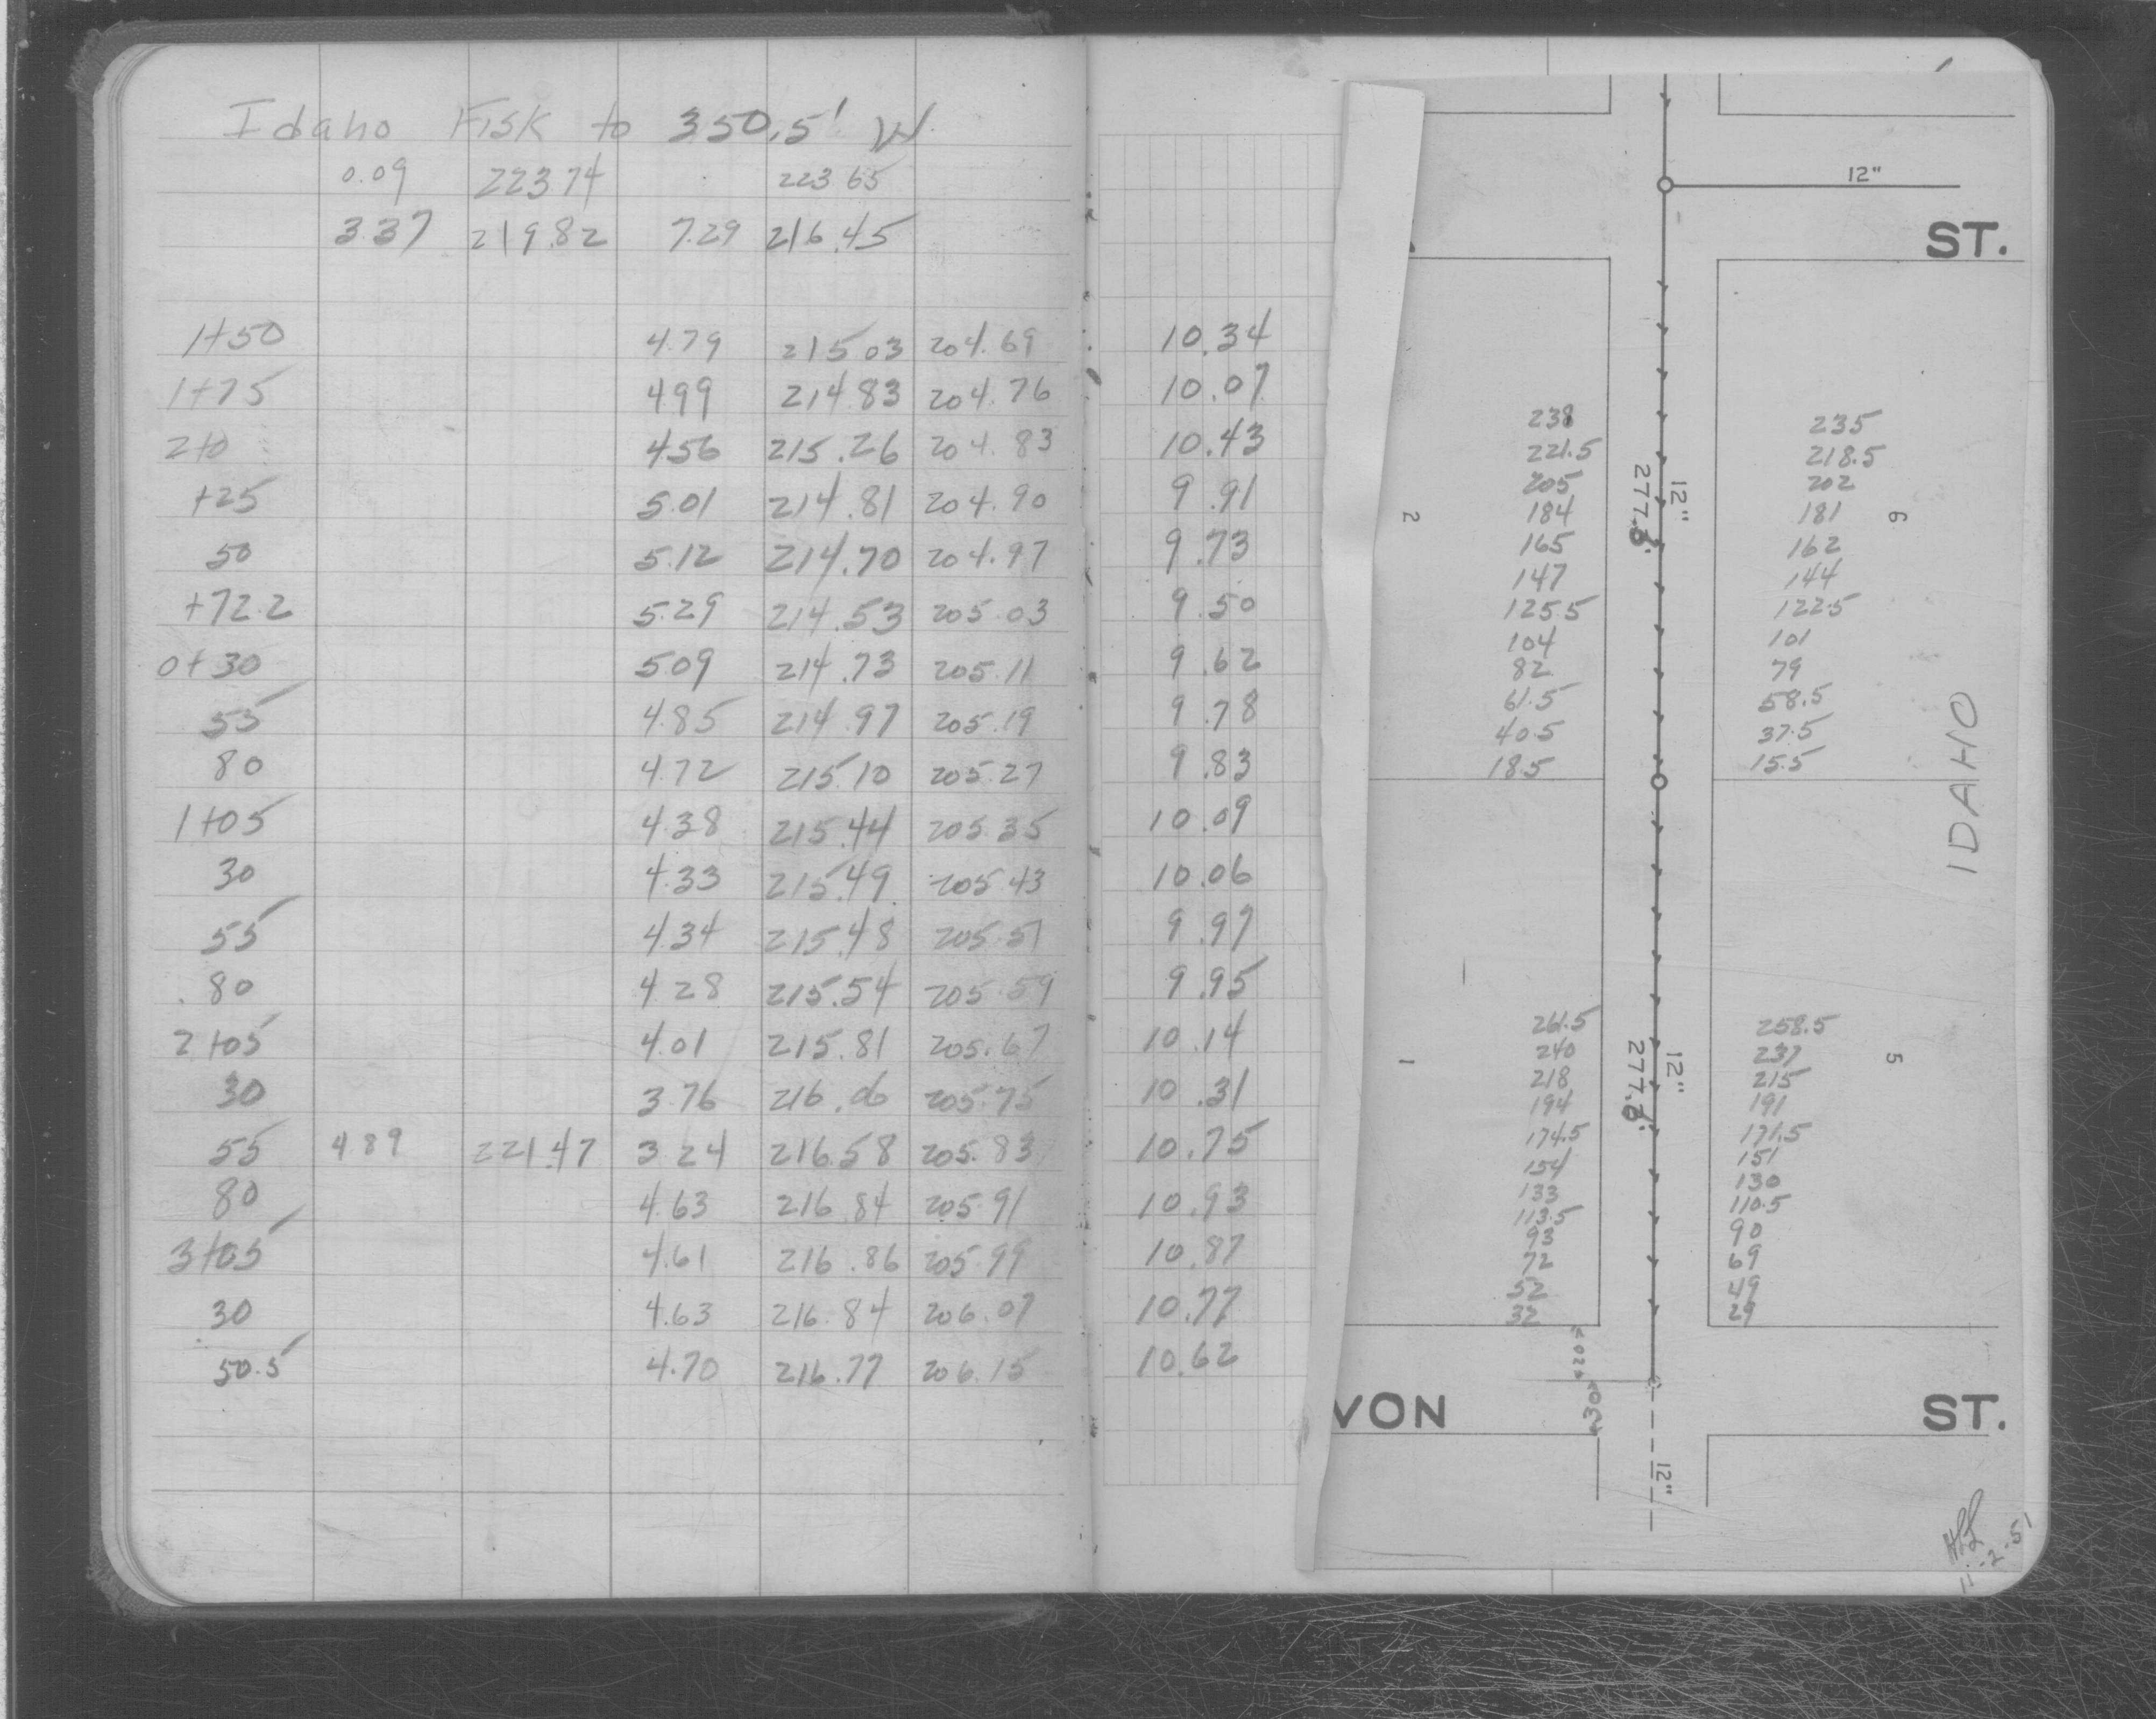 Idaho Fisk to 350.5' W.
0.09 223.74 223.65
3.37 219.82 7.29 216.45
1+50 4.79 215.03 204.69 10.34
1+75 4.99 214.83 204.76 10.07
2+0 4.56 215.26 204.83 10.43
+25 5.01 214.81 204.90 9.91
50 5.12 214.70 204.97 9.73
+72.2 5.29 214.53 205.03 9.50
0+30 5.09 214.73 205.11 9.62
55 4.85 214.97 205.19 9.78
80 4.72 215.10 205.27 9.83
1+05 4.38 215.44 205.35 10.09
30 4.33 215.49 205.43 10.06
55 4.34 215.48 205.51 9.97
80 4.28 215.54 205.59 9.95
2+05 4.01 215.81 205.67 10.14
30 3.76 216.06 205.75 10.31
55 4.89 221.47 3.24 216.58 205.83 10.75
80 4.63 216.84 205.91 10.93
3+05 4.61 216.86 205.99 10.87
30 4.63 216.84 206.07 10.77
50.5 4.70 216.77 206.15 10.62
12"
ST.
238 235
221.5 218.5
205 202
184 181
165 162
147 144
125.5 122.5
104 101
82 79
61.5 58.5
40.5 37.5
18.5 15.5
2
277.8'
12"
6
IDAHO
261.5 258.5
240 237
218 215
194 191
174.5 171.5
154 151
133 130
113.5 110.5
93 90
72 69
52 49
32 29
1
277.8'
12"
5
20
30
VON ST.
12"
11-2-51